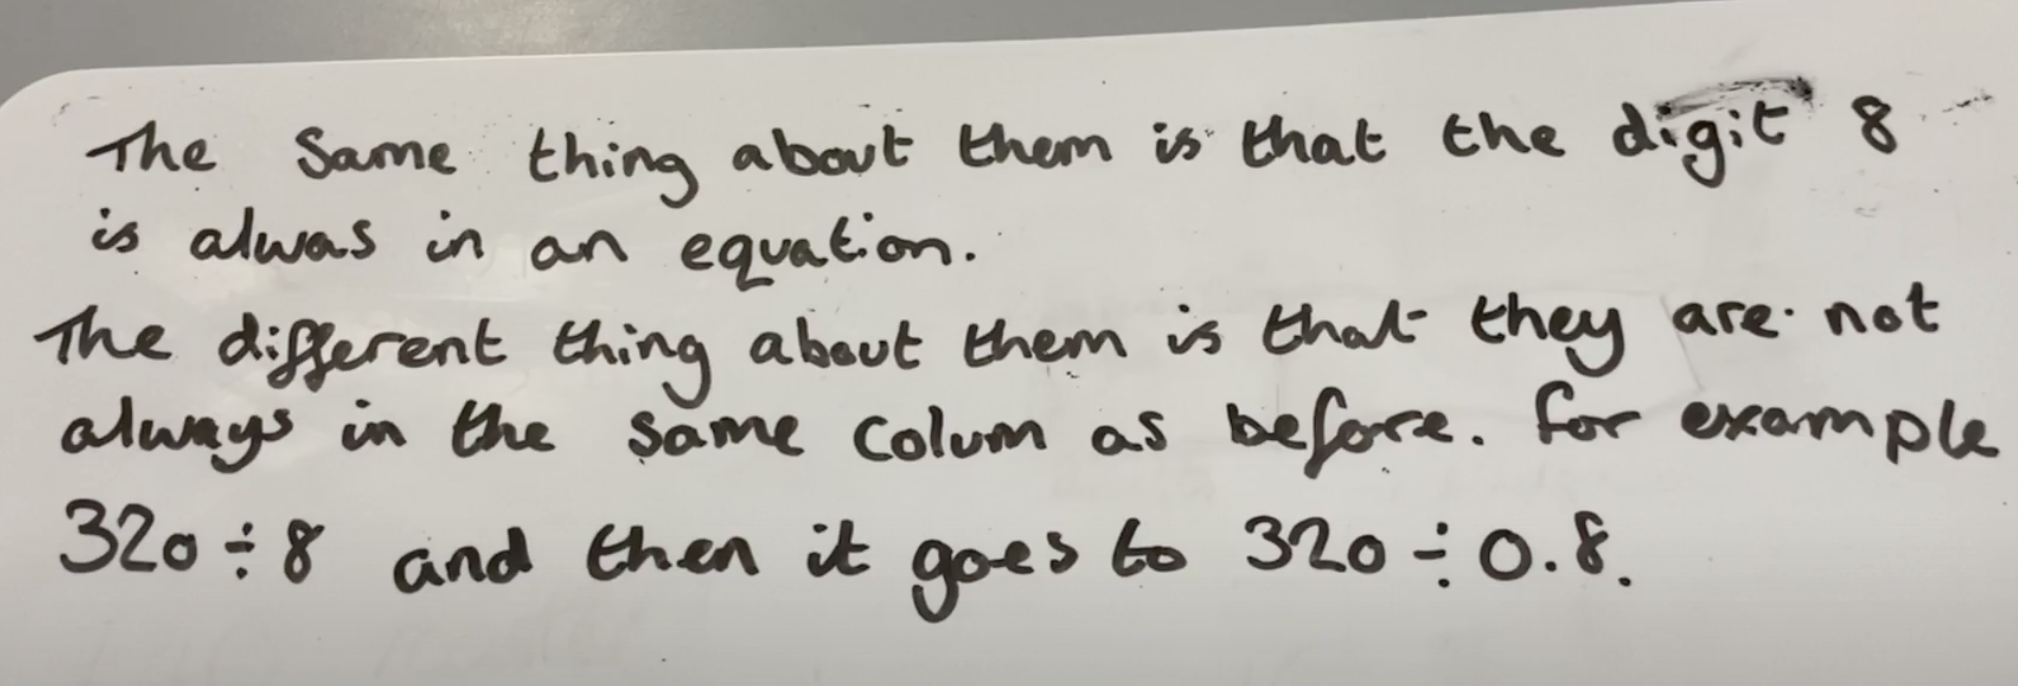 The Same thing about them is that the digit 8
is alwas in an equation.
The different thing about them is that they are not
always in the same Colum as before. for example
320 ÷ 8 and then it goes to 320 ÷ 0.8.